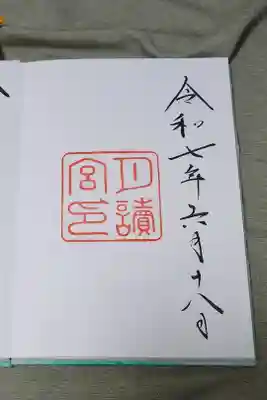 令和七年六月十八日
月讀
宮印